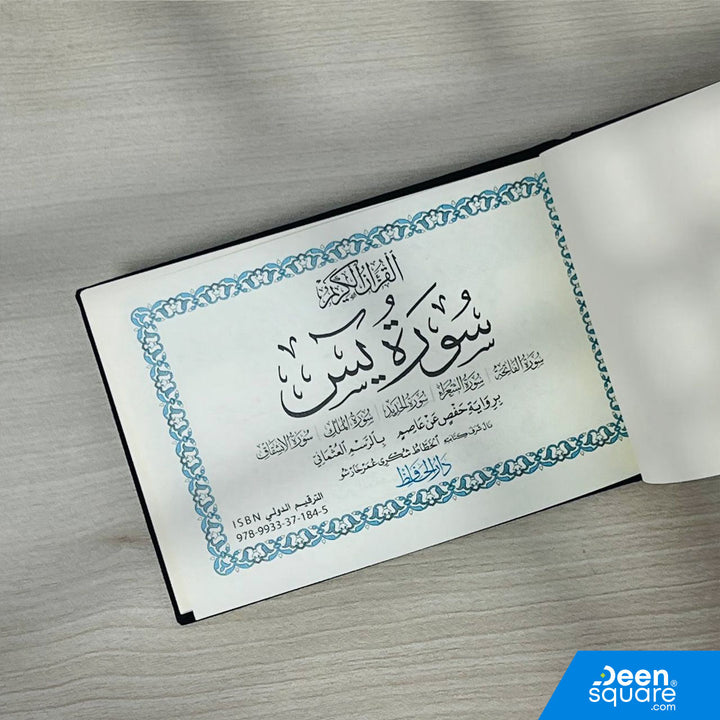 القرآن الكريم
سُورَةُ يسٓ
سُورَةُ الفَاتِحَة | سُورَةُ الشُّعَرَاء | سُورَةُ الحَدِيد | سُورَةُ المُلك | سُورَةُ الانشِقَاق
بِرِوَايَةِ حَفْصٍ عَنْ عَاصِمٍ بِالرَّسْمِ العُثْمَانِي
نَالَ شَرَفَ كِتَابَتِهِ الخَطَّاطُ شُكْرِي
دار الحافظ
الترقيم الدولي ISBN
978-9933-37-184-5
Deen®
square
.com